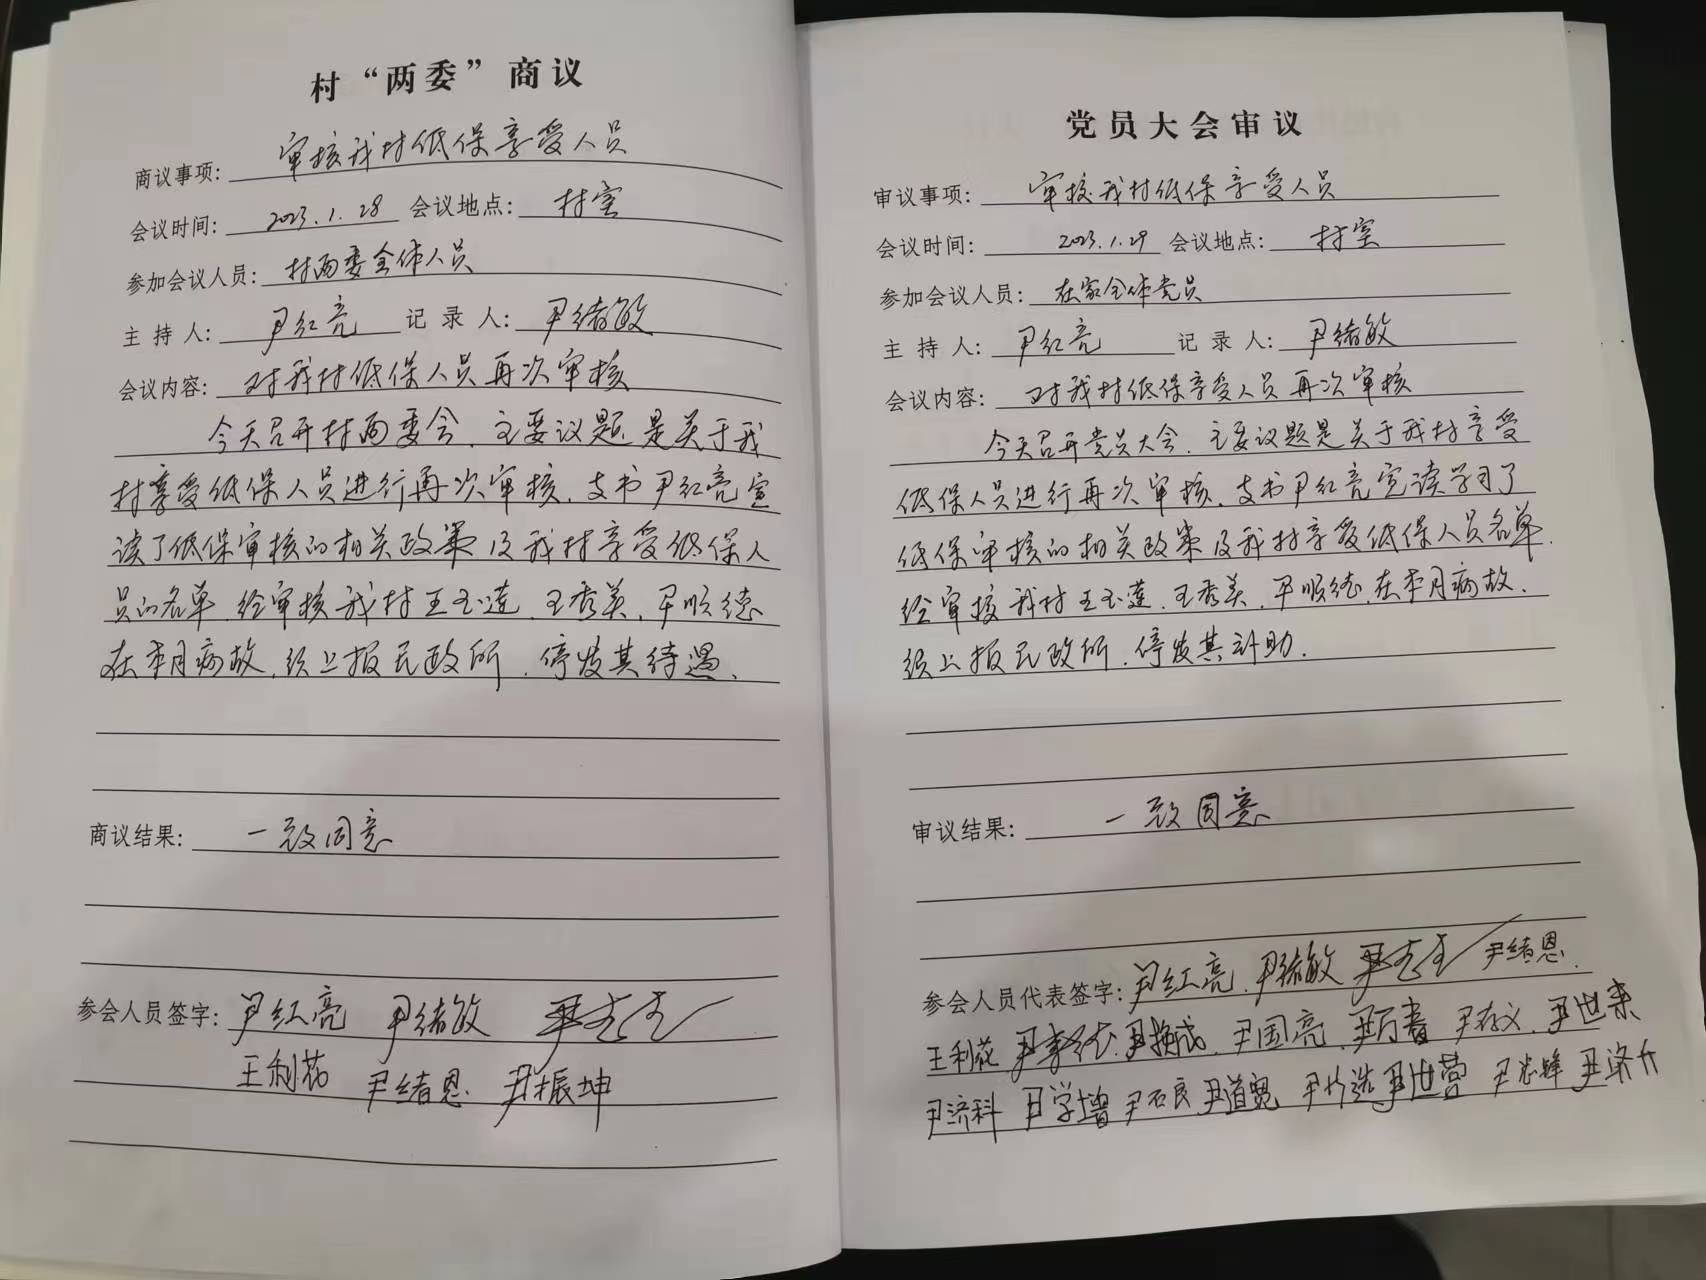 村“两委”商议
商议事项: 审核我村低保享受人员
会议时间: 2023.1.28 会议地点: 村室
参加会议人员: 村两委全体人员
主持人: 尹红亮 记录人: 尹绪敏
会议内容: 对我村低保人员再次审核
今天召开村两委会、主要议题是关于我
村享受低保人员进行再次审核、支书尹红亮宣
读了低保审核的相关政策及我村享受低保人
员的名单、经审核我村王玉莲、王秀美、尹顺德
在本月病故、须上报民政所、停发其待遇、
商议结果: 一致同意
参会人员签字: 尹红亮 尹绪敏
王利花 尹绪恩 尹振坤
党员大会审议
审议事项: 审核我村低保享受人员
会议时间: 2023.1.29 会议地点: 村室
参加会议人员: 在家全体党员
主持人: 尹红亮 记录人: 尹绪敏
会议内容: 对我村低保享受人员再次审核
今天召开党员大会、主要议题是关于我村享受
低保人员进行再次审核、支书尹红亮宣读学习了
低保审核的相关政策及我村享受低保人员名单.
经审核我村王玉莲、王秀美、尹顺德在本月病故、
须上报民政所、停发其补助.
审议结果: 一致同意
参会人员代表签字: 尹红亮. 尹绪敏 尹绪恩.
王利花 尹国亮. 尹万春 尹存义.
尹济科 尹学增 尹石良 尹世营